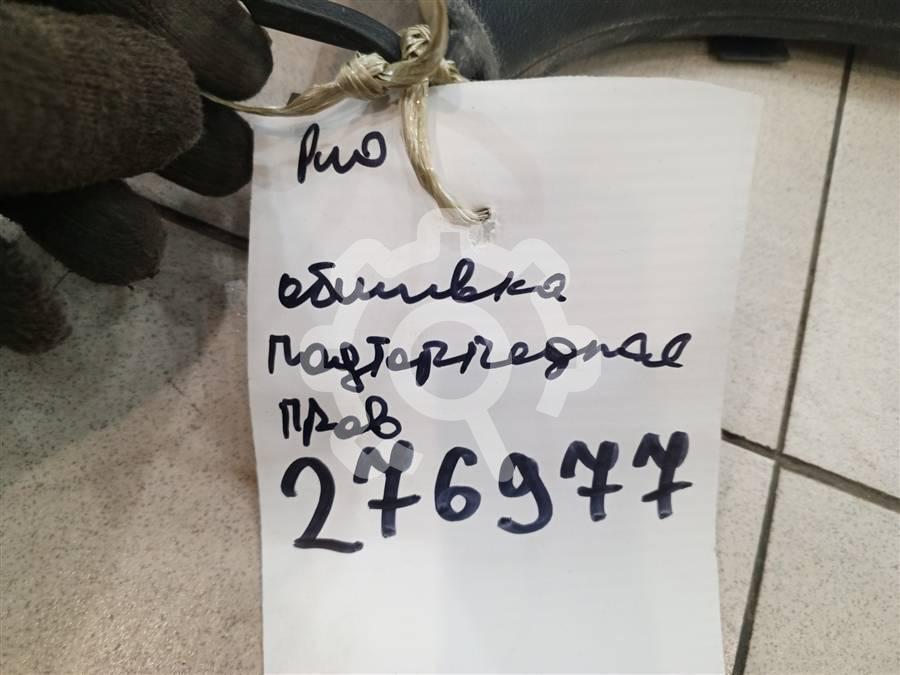 Рио
обшивка
подторпедная
прав
276977